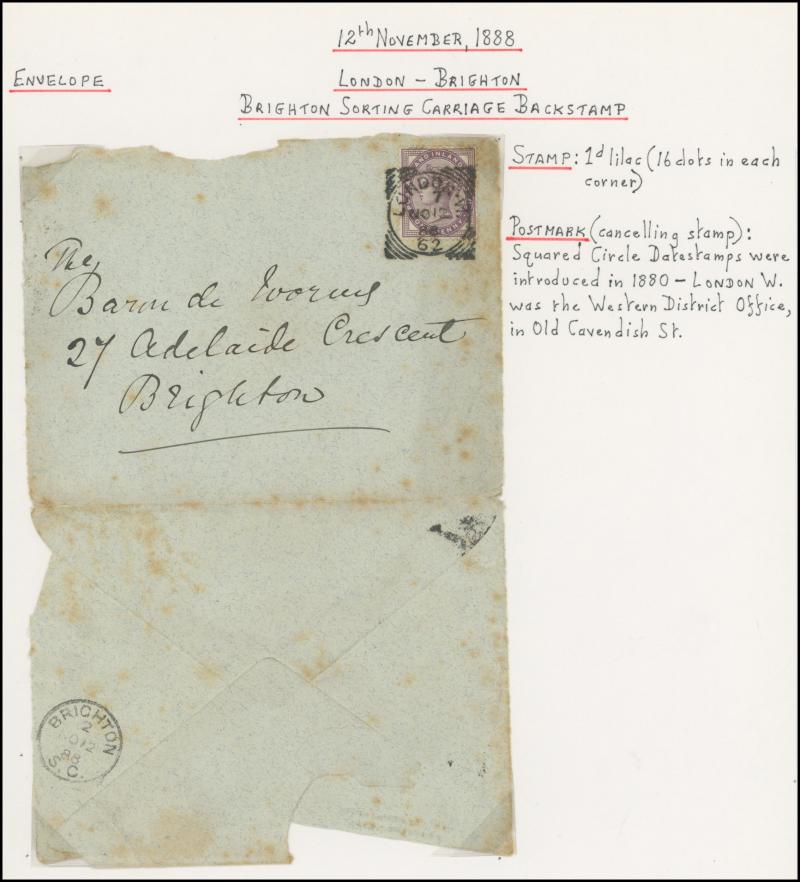 12th November, 1888
Envelope
London – Brighton
Brighton Sorting Carriage Backstamp
Stamp: 1d lilac (16 dots in each
corner)
Postmark (cancelling stamp):
Squared Circle Datestamps were
introduced in 1880 – London W.
was the Western District Office,
in Old Cavendish St.
AND INLAND
LONDON·W
7
NO12
88
62
The
Baron de Worms
27 Adelaide Crescent
Brighton
BRIGHTON
2
NO12
88
S.C.